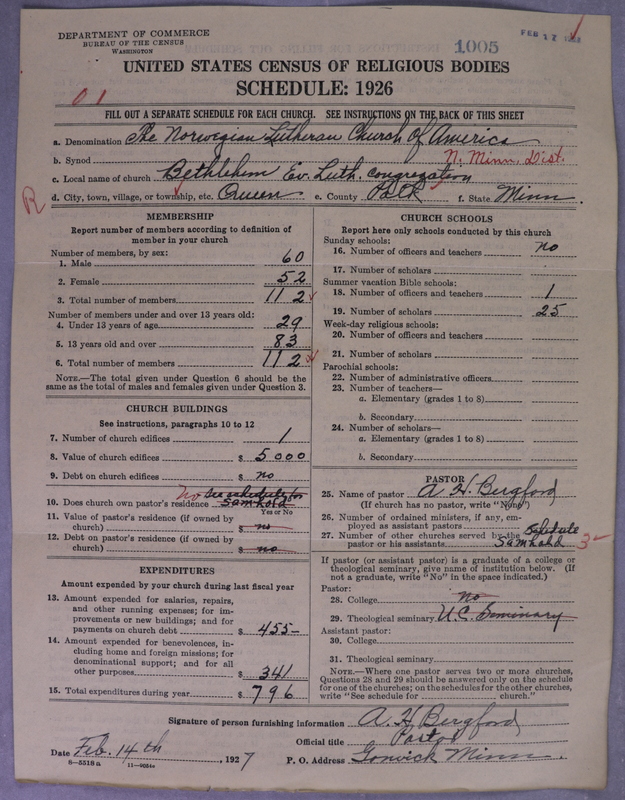 DEPARTMENT OF COMMERCE
BUREAU OF THE CENSUS
WASHINGTON
1005
FEB 17
UNITED STATES CENSUS OF RELIGIOUS BODIES
SCHEDULE: 1926
01
FILL OUT A SEPARATE SCHEDULE FOR EACH CHURCH. SEE INSTRUCTIONS ON THE BACK OF THIS SHEET
a. Denomination The Norwegian Lutheran Church of America
b. Synod N. Minn. Dist.
c. Local name of church Bethlehem Ev. Luth. Congregation
d. City, town, village, or township, etc. Queen e. County Polk f. State Minn.
R
MEMBERSHIP
Report number of members according to definition of
member in your church
Number of members, by sex:
1. Male 60
2. Female 52
3. Total number of members 112
Number of members under and over 13 years old:
4. Under 13 years of age 29
5. 13 years old and over 83
6. Total number of members 112
NOTE.—The total given under Question 6 should be the
same as the total of males and females given under Question 3.
CHURCH BUILDINGS
See instructions, paragraphs 10 to 12
7. Number of church edifices 1
8. Value of church edifices $ 5000
9. Debt on church edifices $ no
No See schedule for
10. Does church own pastor's residence Samhold
Yes or No
11. Value of pastor's residence (if owned by
church) $ no
12. Debt on pastor's residence (if owned by
church) $ no
EXPENDITURES
Amount expended by your church during last fiscal year
13. Amount expended for salaries, repairs,
and other running expenses; for im-
provements or new buildings; and for
payments on church debt $ 455-
14. Amount expended for benevolences, in-
cluding home and foreign missions; for
denominational support; and for all
other purposes $ 341
15. Total expenditures during year $ 796
CHURCH SCHOOLS
Report here only schools conducted by this church
Sunday schools:
16. Number of officers and teachers no
17. Number of scholars
Summer vacation Bible schools:
18. Number of officers and teachers 1
19. Number of scholars 25
Week-day religious schools:
20. Number of officers and teachers
21. Number of scholars
Parochial schools:
22. Number of administrative officers
23. Number of teachers—
a. Elementary (grades 1 to 8)
b. Secondary
24. Number of scholars—
a. Elementary (grades 1 to 8)
b. Secondary
PASTOR
25. Name of pastor A. H. Bergford
(If church has no pastor, write "None")
26. Number of ordained ministers, if any, em-
ployed as assistant pastors
27. Number of other churches served by the Schedule
pastor or his assistants Samhold 3-
If pastor (or assistant pastor) is a graduate of a college or
theological seminary, give name of institution below. (If
not a graduate, write "No" in the space indicated.)
Pastor:
28. College no
29. Theological seminary U.C. Seminary
Assistant pastor:
30. College
31. Theological seminary
NOTE.—Where one pastor serves two or more churches,
Questions 28 and 29 should be answered only on the schedule
for one of the churches; on the schedules for the other churches,
write "See schedule for church."
Signature of person furnishing information A. H. Bergford
Official title Pastor
Date Feb. 14th, 1927 P. O. Address Gonvick Minn.
8-5518a